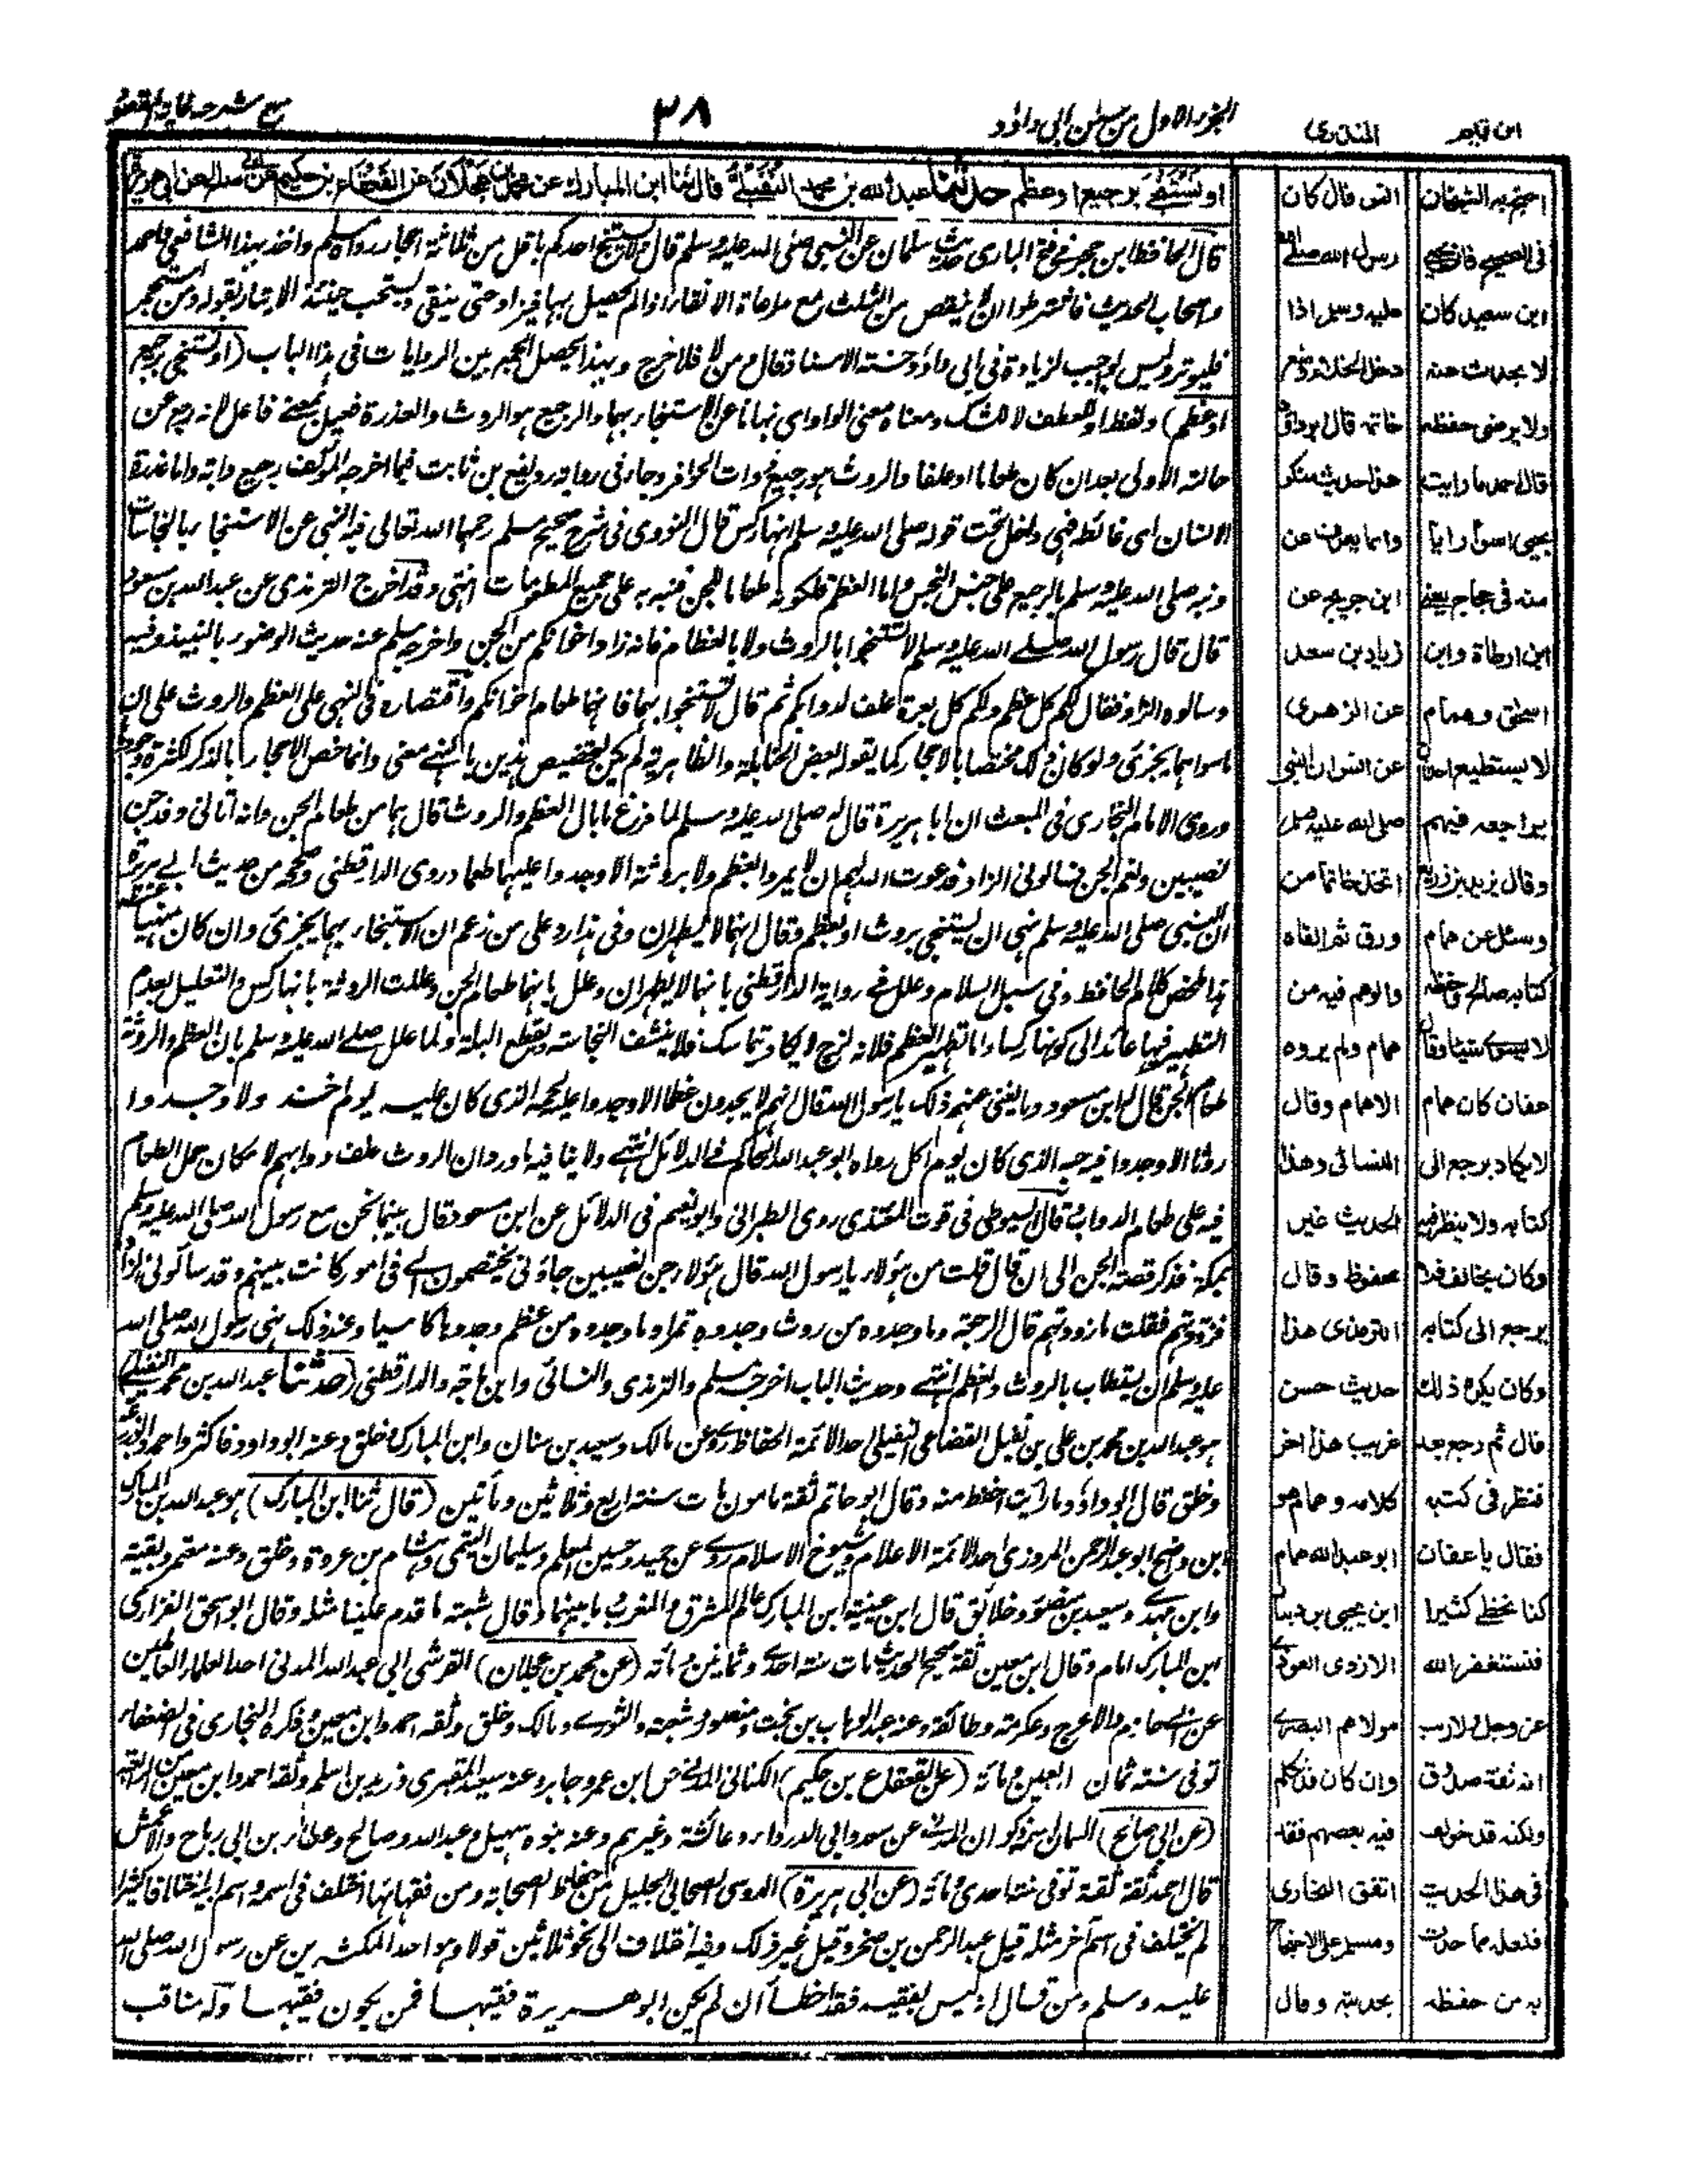 ابن قيم
المنذري
الجزء الاول من سنن ابي داؤد
٣٨
مع شرحه غاية المقصود
او نستنجي برجيع او عظم حدثنا عبد الله بن محمد النفيلي قال ثنا ابن المبارك عن محمد بن عجلان عن القعقاع بن حكيم عن ابي صالح عن ابي هريرة
قال الحافظ ابن حجر في فتح الباري حديث سلمان عن النبي صلى الله عليه وسلم قال لا يستنج احدكم باقل من ثلاثة احجار رواه مسلم واخذ بهذا الشافعي واحمد
واصحاب الحديث فاشترطوا ان لا ينقص من الثلث مع مراعاة الانقاء اذا لم يحصل بها فيزاد حتى ينقي ويستحب حينئذ الايتار بقوله ومن استجمر
فليوتر وليس بواجب لزيادة في ابي داؤد حسنة الاسناد قال ومن لا فلا حرج وبهذا يحصل الجمع بين الروايات في هذا الباب (او نستنجي برجيع
او عظم) ولفظ او للعطف لا للشك ومعناه معنى الواو اي نهانا عن الاستنجاء بهما والرجيع هو الروث والعذرة فعيل بمعنى فاعل لانه رجع عن
حالته الاولى بعد ان كان طعاما او علفا والروث هو رجيع ذوات الحوافر وجاء في رواية رويفع بن ثابت فيما اخرجه المؤلف برجيع دابة واما عذرة
الانسان اي غائطه فهي داخل تحت قوله صلى الله عليه وسلم انها ركس قال النووي في شرح صحيح مسلم رحمها الله تعالى فيه النهي عن الاستنجاء بالنجاسات
ونبه صلى الله عليه وسلم بالرجيع على جنس النجس واما العظم فلكونه طعاما للجن فنبه به على جميع المطعومات انتهى وقد اخرج الترمذي عن عبد الله بن مسعود
قال قال رسول الله صلى الله عليه وسلم لا تستنجوا بالروث ولا بالعظام فانه زاد اخوانكم من الجن واخرج مسلم عنه حديث الوضوء بالنبيذ وفيه
وسالوه الزاد فقال لكم كل عظم ولكم كل بعرة علف لدوابكم ثم قال لا تستنجوا بهما فانهما طعام اخوانكم واقتصاره في النهي على العظم والروث على ان
ما سواهما يجزئ ولو كان ذلك مختصا بالاحجار كما يقوله بعض الحنابلة والظاهرية لم يكن لتخصيص هذين بالنهي معنى وانما خص الاحجار بالذكر لكثرة وجودها
وروى الامام البخاري في المبعث ان ابا هريرة قال له صلى الله عليه وسلم لما فرغ ما بال العظم والروث قال هما من طعام الجن وانه اتاني وفد جن
نصيبين ونعم الجن فسالوني الزاد فدعوت الله لهم ان لا يمروا بعظم ولا بروثة الا وجدوا عليها طعما وروى الدارقطني وصححه من حديث ابي هريرة
ان النبي صلى الله عليه وسلم نهى ان يستنجي بروث او بعظم وقال انهما لا يطهران وفي هذا رد على من زعم ان الاستنجاء بهما يجزئ وان كان منهيا عنه
هذا ملخص كلام الحافظ وفي سبل السلام وعلل في رواية الدارقطني بانهما لا يطهران وعلل بانهما طعام الجن وعللت الروثة بانها ركس والتعليل بعدم
التطهير فيها عائد الى كونها ركسا واما عدم تطهير العظم فلانه لزج لا يكاد يتماسك فلا ينشف النجاسة ولا يقطع البلة ولما علل صلى الله عليه وسلم بان العظم والروثة
طعام الجن قال له ابن مسعود وما يغني عنهم ذلك يا رسول الله قال انهم لا يجدون عظما الا وجدوا عليه لحمه الذي كان عليه يوم اخذ ولا وجدوا
روثا الا وجدوا فيه حبه الذي كان يوم اكل رواه ابو عبد الله الحاكم في الدلائل انتهى ولا ينافيه ما ورد ان الروث علف دوابهم لامكان حمل الطعام
فيه على طعام الدواب قال السيوطي في قوت المغتذي روى الطبراني وابو نعيم في الدلائل عن ابن مسعود قال بينما نحن مع رسول الله صلى الله عليه وسلم
بمكة فذكر قصة الجن الى ان قال قلت من هؤلاء يا رسول الله قال هؤلاء جن نصيبين جاؤني يختصمون الي في امور كانت بينهم وقد سألوني الزاد
فزودتهم فقلت ما زودتهم قال الرجعة وما وجدوه من روث وجدوه تمرا وما وجدوه من عظم وجدوه كاسيا وعند ذلك نهى رسول الله صلى الله
عليه وسلم ان يستطاب بالروث والعظم انتهى وحديث الباب اخرجه مسلم والترمذي والنسائي وابن ماجه والدارقطني (حدثنا عبد الله بن محمد النفيلي)
هو عبد الله بن محمد بن علي بن نفيل القضاعي النفيلي احد الائمة الحفاظ روى عن مالك وسعيد بن سنان وابن المبارك وخلق وعنه ابو داود فاكثر واحمد
وخلق قال ابو داؤد ما رأيت احفظ منه وقال ابو حاتم ثقة مامون مات سنة اربع وثلاثين ومأتين (قال ثنا ابن المبارك) هو عبد الله بن المبارك
ابن واضح ابو عبد الرحمن المروزي احد الائمة الاعلام وشيوخ الاسلام روى عن حميد وحسين المعلم وسليمان التيمي وهشام بن عروة وخلق وعنه معمر وبقية
وابن مهدي وسعيد بن منصور وخلائق قال ابن عيينة ابن المبارك عالم المشرق والمغرب وما بينهما وقال شعبة ما قدم علينا مثله وقال ابو اسحق الفزاري
ابن المبارك امام وقال ابن معين ثقة صحيح الحديث مات سنة احدى وثمانين ومائة (عن محمد بن عجلان) القرشي ابي عبد الله المدني احد العلماء العاملين
عن ابي حازم والاعرج وعكرمة وطائفة وعنه عبد الوهاب بن بخت ومنصور وشعبة والثوري ومالك وخلق وثقه احمد وابن معين وذكره البخاري في الضعفاء
توفي سنة ثمان اربعين ومائة (عن القعقاع بن حكيم) الكناني المدني عن ابن عمر وجابر وعنه سعيد المقبري وزيد بن اسلم وثقه احمد وابن معين
(عن ابي صالح) السمان اسمه ذكوان المدني عن سعد وابي الدرداء وعائشة وغيرهم وعنه بنوه سهيل وعبد الله وصالح وعطاء بن ابي رباح والاعمش
قال احمد ثقة ثقة توفي سنة احدى ومائة (عن ابي هريرة) الدوسي الصحابي الجليل من حفاظ الصحابة ومن فقهائها اختلف في اسمه واسم ابيه اختلافا كثيرا
لم يختلف في اسم اخر مثله قيل عبد الرحمن بن صخر وقيل غير ذلك وفيه اختلاف الى نحو ثلاثين قولا وهو احد المكثرين عن رسول الله صلى الله
عليه وسلم ومن قال انه ليس بفقيه فقد اخطأ ان لم يكن ابو هريرة فقيها فمن يكون فقيها وله مناقب
انس قال كان
رسول الله صلى الله
عليه وسلم اذا
دخل الخلاء وضع
خاتمه قال ابو داود
هذا حديث منكر
وانما يعرف عن
ابن جريج عن
زياد بن سعد
عن الزهري
عن انس ان النبي
صلى الله عليه وسلم
اتخذ خاتما من
ورق ثم القاه
والوهم فيه من
همام ولم يروه
الا همام وقال
النسائي وهذا
الحديث غير
محفوظ وقال
الترمذي هذا
حديث حسن
غريب هذا اخر
كلامه وهمام هو
ابو عبد الله همام
ابن يحيى بن دينار
الازدي العوذي
مولاهم البصري
وان كان قد تكلم
فيه بعضهم فقد
اتفق البخاري
ومسلم على الاحتجاج
بحديثه وقال
احتج به الشيخان
في الصحيح فان يحيى
ابن سعيد كان
لا يحدث عنه
ولا يرضى حفظه
قال احمد ما رايت
يحيى اسوأ رايا
منه في حجاج يعني
ابن ارطاة وابن
اسحق وهمام
لا يستطيع احد ان
يراجعه فيهم
وقال يزيد بن زريع
وسئل عن همام
كتابه صالح وحفظه
لا يسوى شيئا وقال
عفان كان همام
لا يكاد يرجع الى
كتابه ولا ينظر فيه
وكان يخالف فلا
يرجع الى كتابه
وكان يكره ذلك
قال ثم رجع بعد
فنظر في كتبه
فقال يا عفان
كنا نخطئ كثيرا
فنستغفر الله
عز وجل ولا ريب
انه ثقة صدوق
ولكنه قد خولف
في هذا الحديث
فلعله مما حدث
به من حفظه